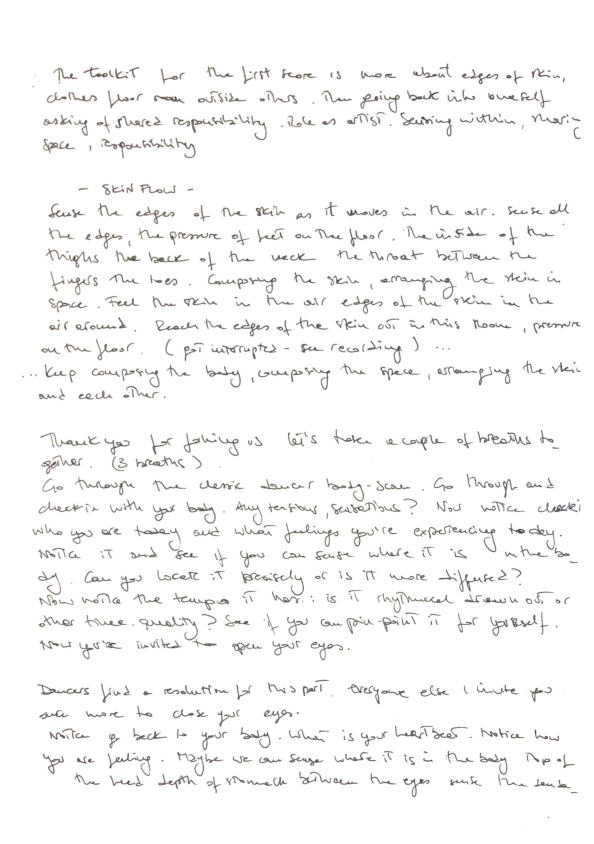 The toolkit for the first score is more about edges of skin,
clothes floor room outside others. Then going back into oneself
asking of shared responsibility. Role as artist. Sensing within, sharing
space, responsibility
- SKIN FLOW -
Sense the edges of the skin as it moves in the air. sense all
the edges, the pressure of feet on the floor. The inside of the
thighs the back of the neck the throat between the
fingers the toes. Composing the skin, arranging the skin in
space. Feel the skin in the air edges of the skin in the
air around. Reach the edges of the skin out in this Room, pressure
on the floor. (got interrupted - see recording) ...
... Keep composing the body, composing the space, arranging the skin
and each other.
Thank you for joining us let's take a couple of breaths to_
gether. (3 breaths)
Go through the classic dancer body-scan. Go through and
check in with your body. Any tensions, sensations? Now notice checki
who you are today and what feelings you're experiencing today.
Notice it and see if you can sense where it is in the bo_
dy. Can you locate it precisely or is it more diffused?
Now notice the tempo it has: is it rhythmical drawn out or
other time quality? See if you can pin-point it for yourself.
Now you're invited to open your eyes.
Dancers find a resolution for this part. Everyone else I invite you
once more to close your eyes.
Notice go back to your body. What is your heartbeat. Notice how
you are feeling. Maybe we can sense where it is in the body Top of
the head depth of stomach between the eyes sense the sense_